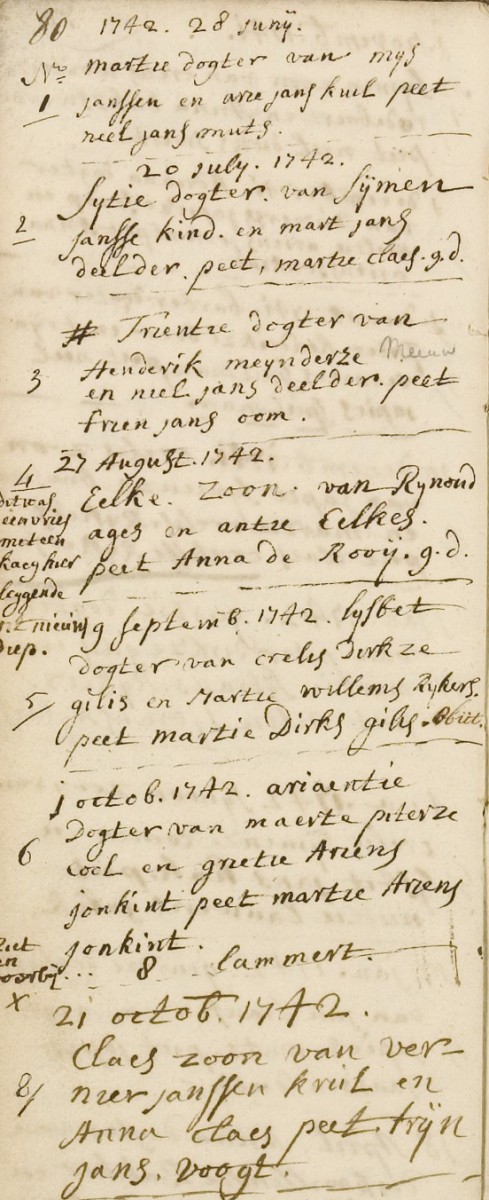 80 1742. 28 junij.
No martie dogter van mijs
1 janssen en arie jans kuil peet
neel jans muts.
20 july. 1742.
Sytie dogter. van Sijmen
2 jansse kind. en mart jans
deelder. peet, martie claes. g.d.
# Trientie dogter van
3 Henderik meynderze Meeuw
en niel jans deelder. peet
trien jans oom.
27 August. 1742.
4 Eelke. zoon. van Rynoud
ages en antie Eelkes.
peet Anna de Rooij. g.d.
dit was
een vries
met een
kaeg hier
leggende
int nieuw
diep.
9 septemb. 1742. lysbet
dogter van crelis Dirkze
5 gilis en Martie willems Rykers.
peet martie Dirks gilis. obiit.
1 octob. 1742. ariaentie
Dogter van maerte piterze
6 coel en grietie Ariens
jonkint peet martie Ariens
jonkint.
ziet
en
voorbij... 8 lammert.
X
21 octob. 1742.
Claes zoon van ver-
8 nier janssen krul en
Anna claes peet. trijn
jans. voogt.